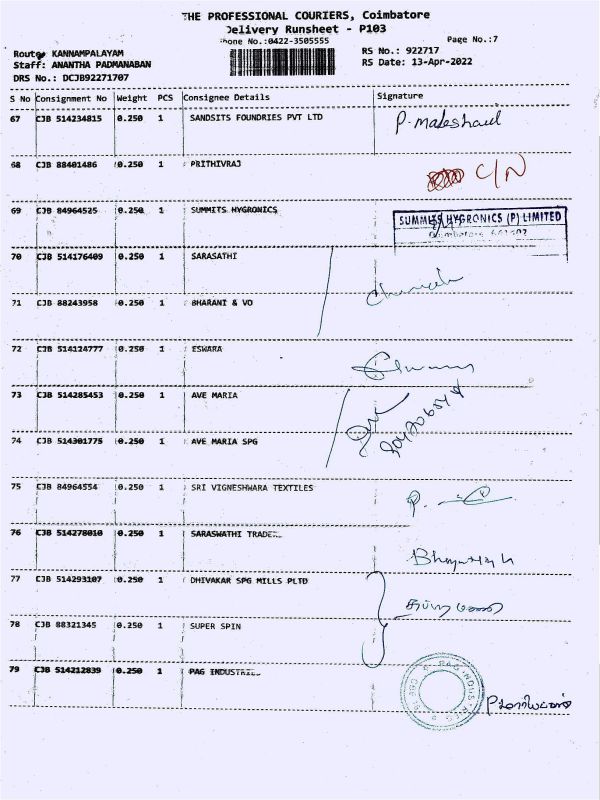 THE PROFESSIONAL COURIERS, Coimbatore
Delivery Runsheet - P103
Phone No.:0422-3505555
Page No.:7
Route: KANNAMPALAYAM
RS No.: 922717
Staff: ANANTHA PADMANABAN
RS Date: 13-Apr-2022
DRS No.: DCJB92271707
S No Consignment No Weight PCS Consignee Details Signature
67 CJB 514234815 0.250 1 SANDSITS FOUNDRIES PVT LTD
68 CJB 88401486 0.250 1 PRITHIVRAJ C/N
69 CJB 84964525 0.250 1 SUMMITS HYGRONICS
SUMMITS HYGRONICS (P) LIMITED
70 CJB 514176409 0.250 1 SARASATHI
71 CJB 88243958 0.250 1 BHARANI & VO
72 CJB 514124777 0.250 1 ESWARA
73 CJB 514285453 0.250 1 AVE MARIA
74 CJB 514301775 0.250 1 AVE MARIA SPG
75 CJB 84964554 0.250 1 SRI VIGNESHWARA TEXTILES
76 CJB 514278010 0.250 1 SARASWATHI TRADE..
77 CJB 514293107 0.250 1 DHIVAKAR SPG MILLS PLTD
78 CJB 88321345 0.250 1 SUPER SPIN
79 CJB 514212839 0.250 1 PAG INDUSTRIE..